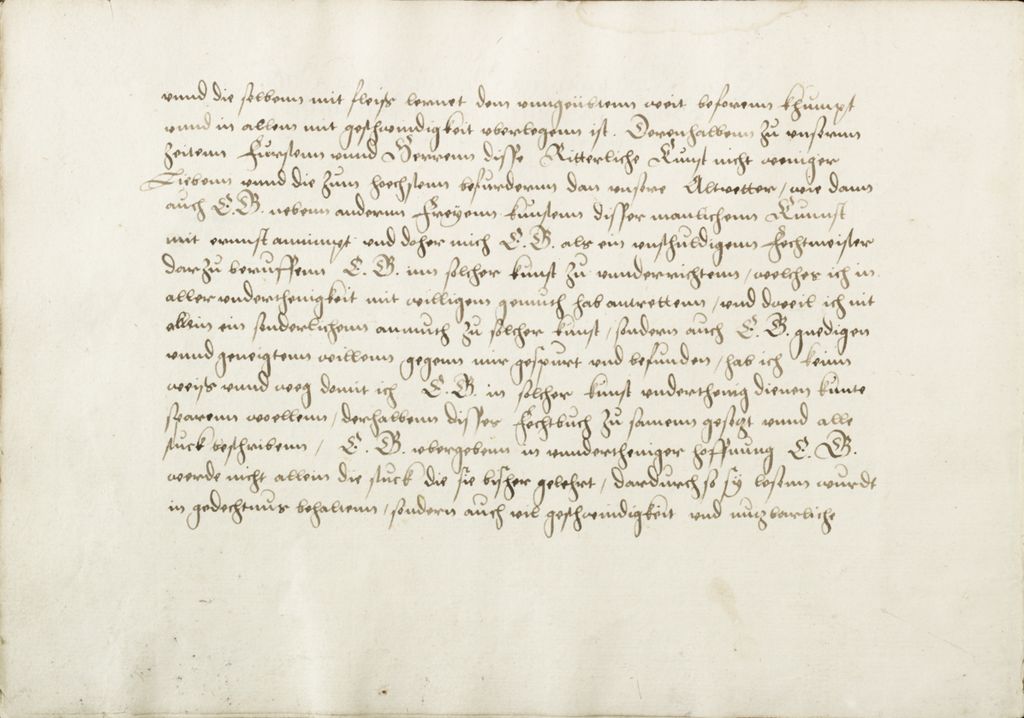 vnnd die selbenn mit fleiss lernet dem vnngeübtenn weit beforenn khumpt
vnnd in allem mit geschwindigkeit vberlegenn ist. Derenhalbenn zu vnsernn
zeitenn Furstenn vnnd Herrenn disse Ritterliche Kunst nicht weniger
Liebenn vnnd die zum hoechstenn befurdernn dan vnsere Altvetter / wie dann
auch E. G. nebenn andernn Freyenn kunstenn disser manlichenn Kunnst
mit ernnst annimpt vnd doher mich E. G. als ein vnschuldigenn Fechtmeister
darzu beruffenn E. G. inn solcher kunst zu vnnderrichtenn / welches ich in
aller vnderthenigkeit mit willigem gemuth hab antrettenn / vnd dweil ich nit
allein ein sonderlichenn anmuth zu solcher kunst / sondern auch E. G. gnedigen
vnnd geneigtenn willenn gegenn mir gespurt vnd befunden / hab ich keinn
weiss vnnd weg domit ich E. G. in solcher kunst vnderthenig dienen kunte
sparenn wellenn / derhalbenn disses Fechtbuch zu samenn gesetzt vnnd alle
stuck beschribenn / E. G. vbergebenn in vnndertheniger hoffnung E. G.
werde nicht allein die stuck die sie bisher gelehrt / dardurch so sy losenn wurdt
in gedechtnus behaltenn / sondern auch vil geschwindigkeit vnd nutzbarliche